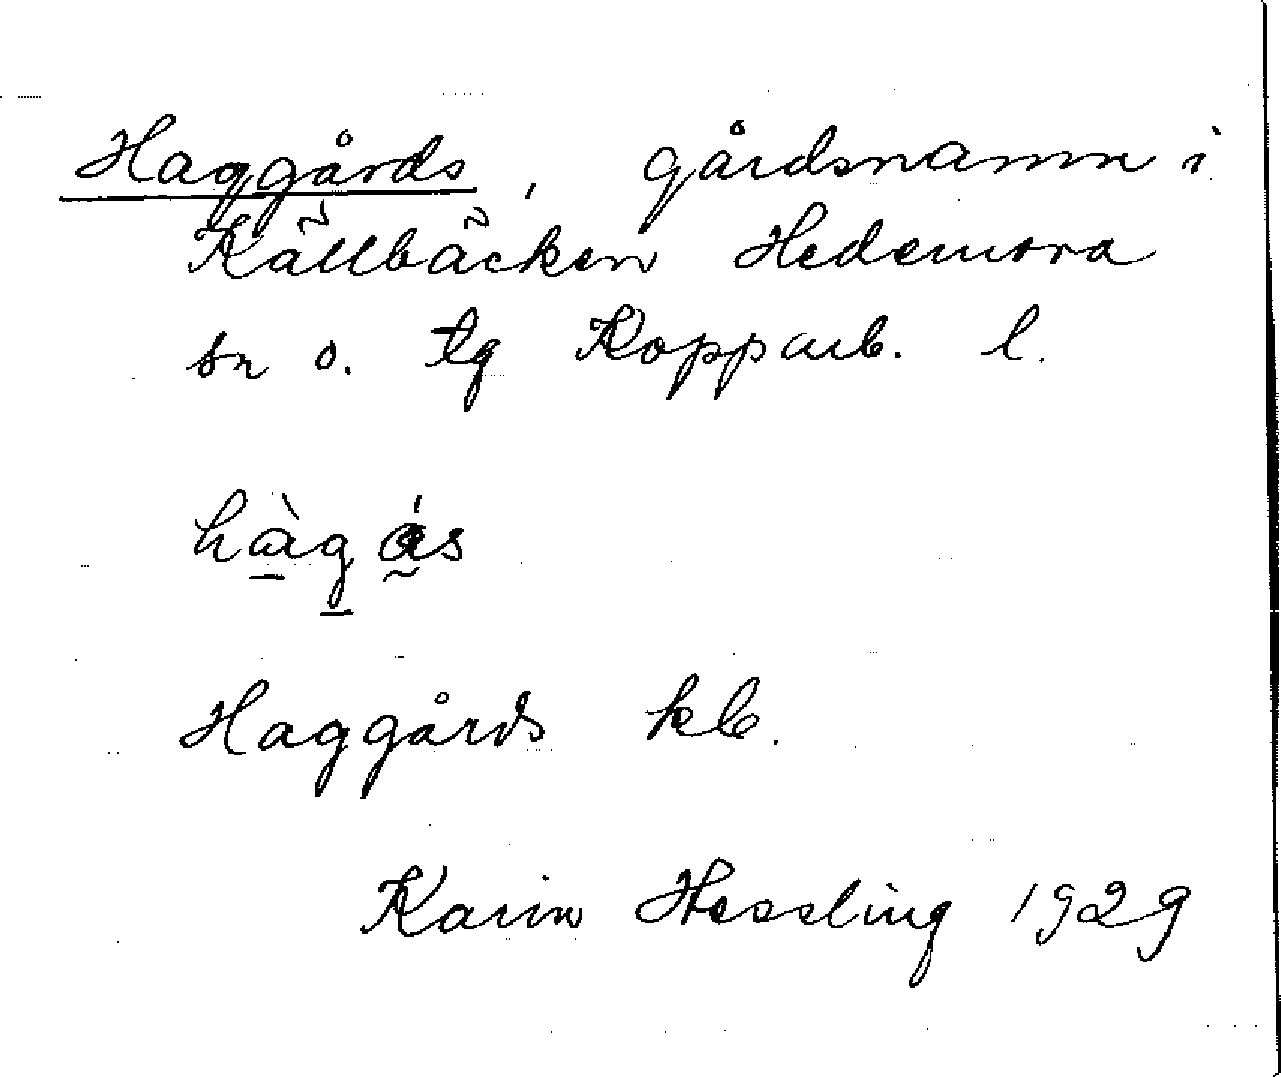 Haggårds, gårdsnamn i
Källbäcken Hedemora
sn o. tg Kopparb. l.
Haggårds kb.
Karin Hessling 1929